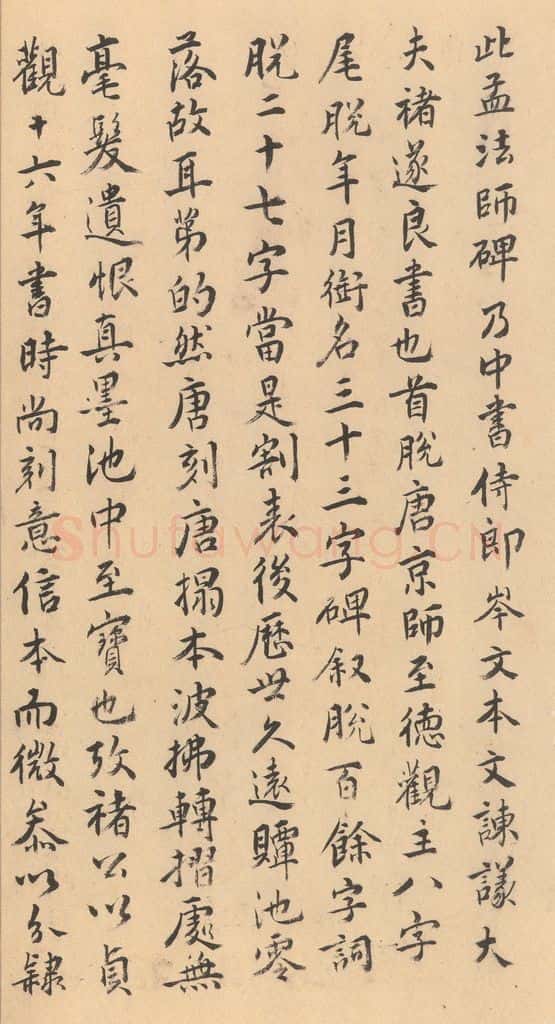 此孟法師碑乃中書侍郎岑文本文諫議大
夫褚遂良書也首脫唐京師至德觀主八字
尾脫年月銜名三十三字碑叙脫百餘字詞
脫二十七字當是割表後歷世久遠贉池零
落故耳苐的然唐刻唐搨本波拂轉摺處無
毫髮遺恨真墨池中至寶也攷褚公以貞
觀十六年書時尚刻意信本而微叅以分隸
Shufawang.CN